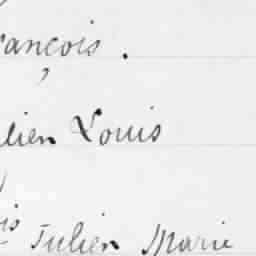 rançois.
lien Louis
is Julien Marie